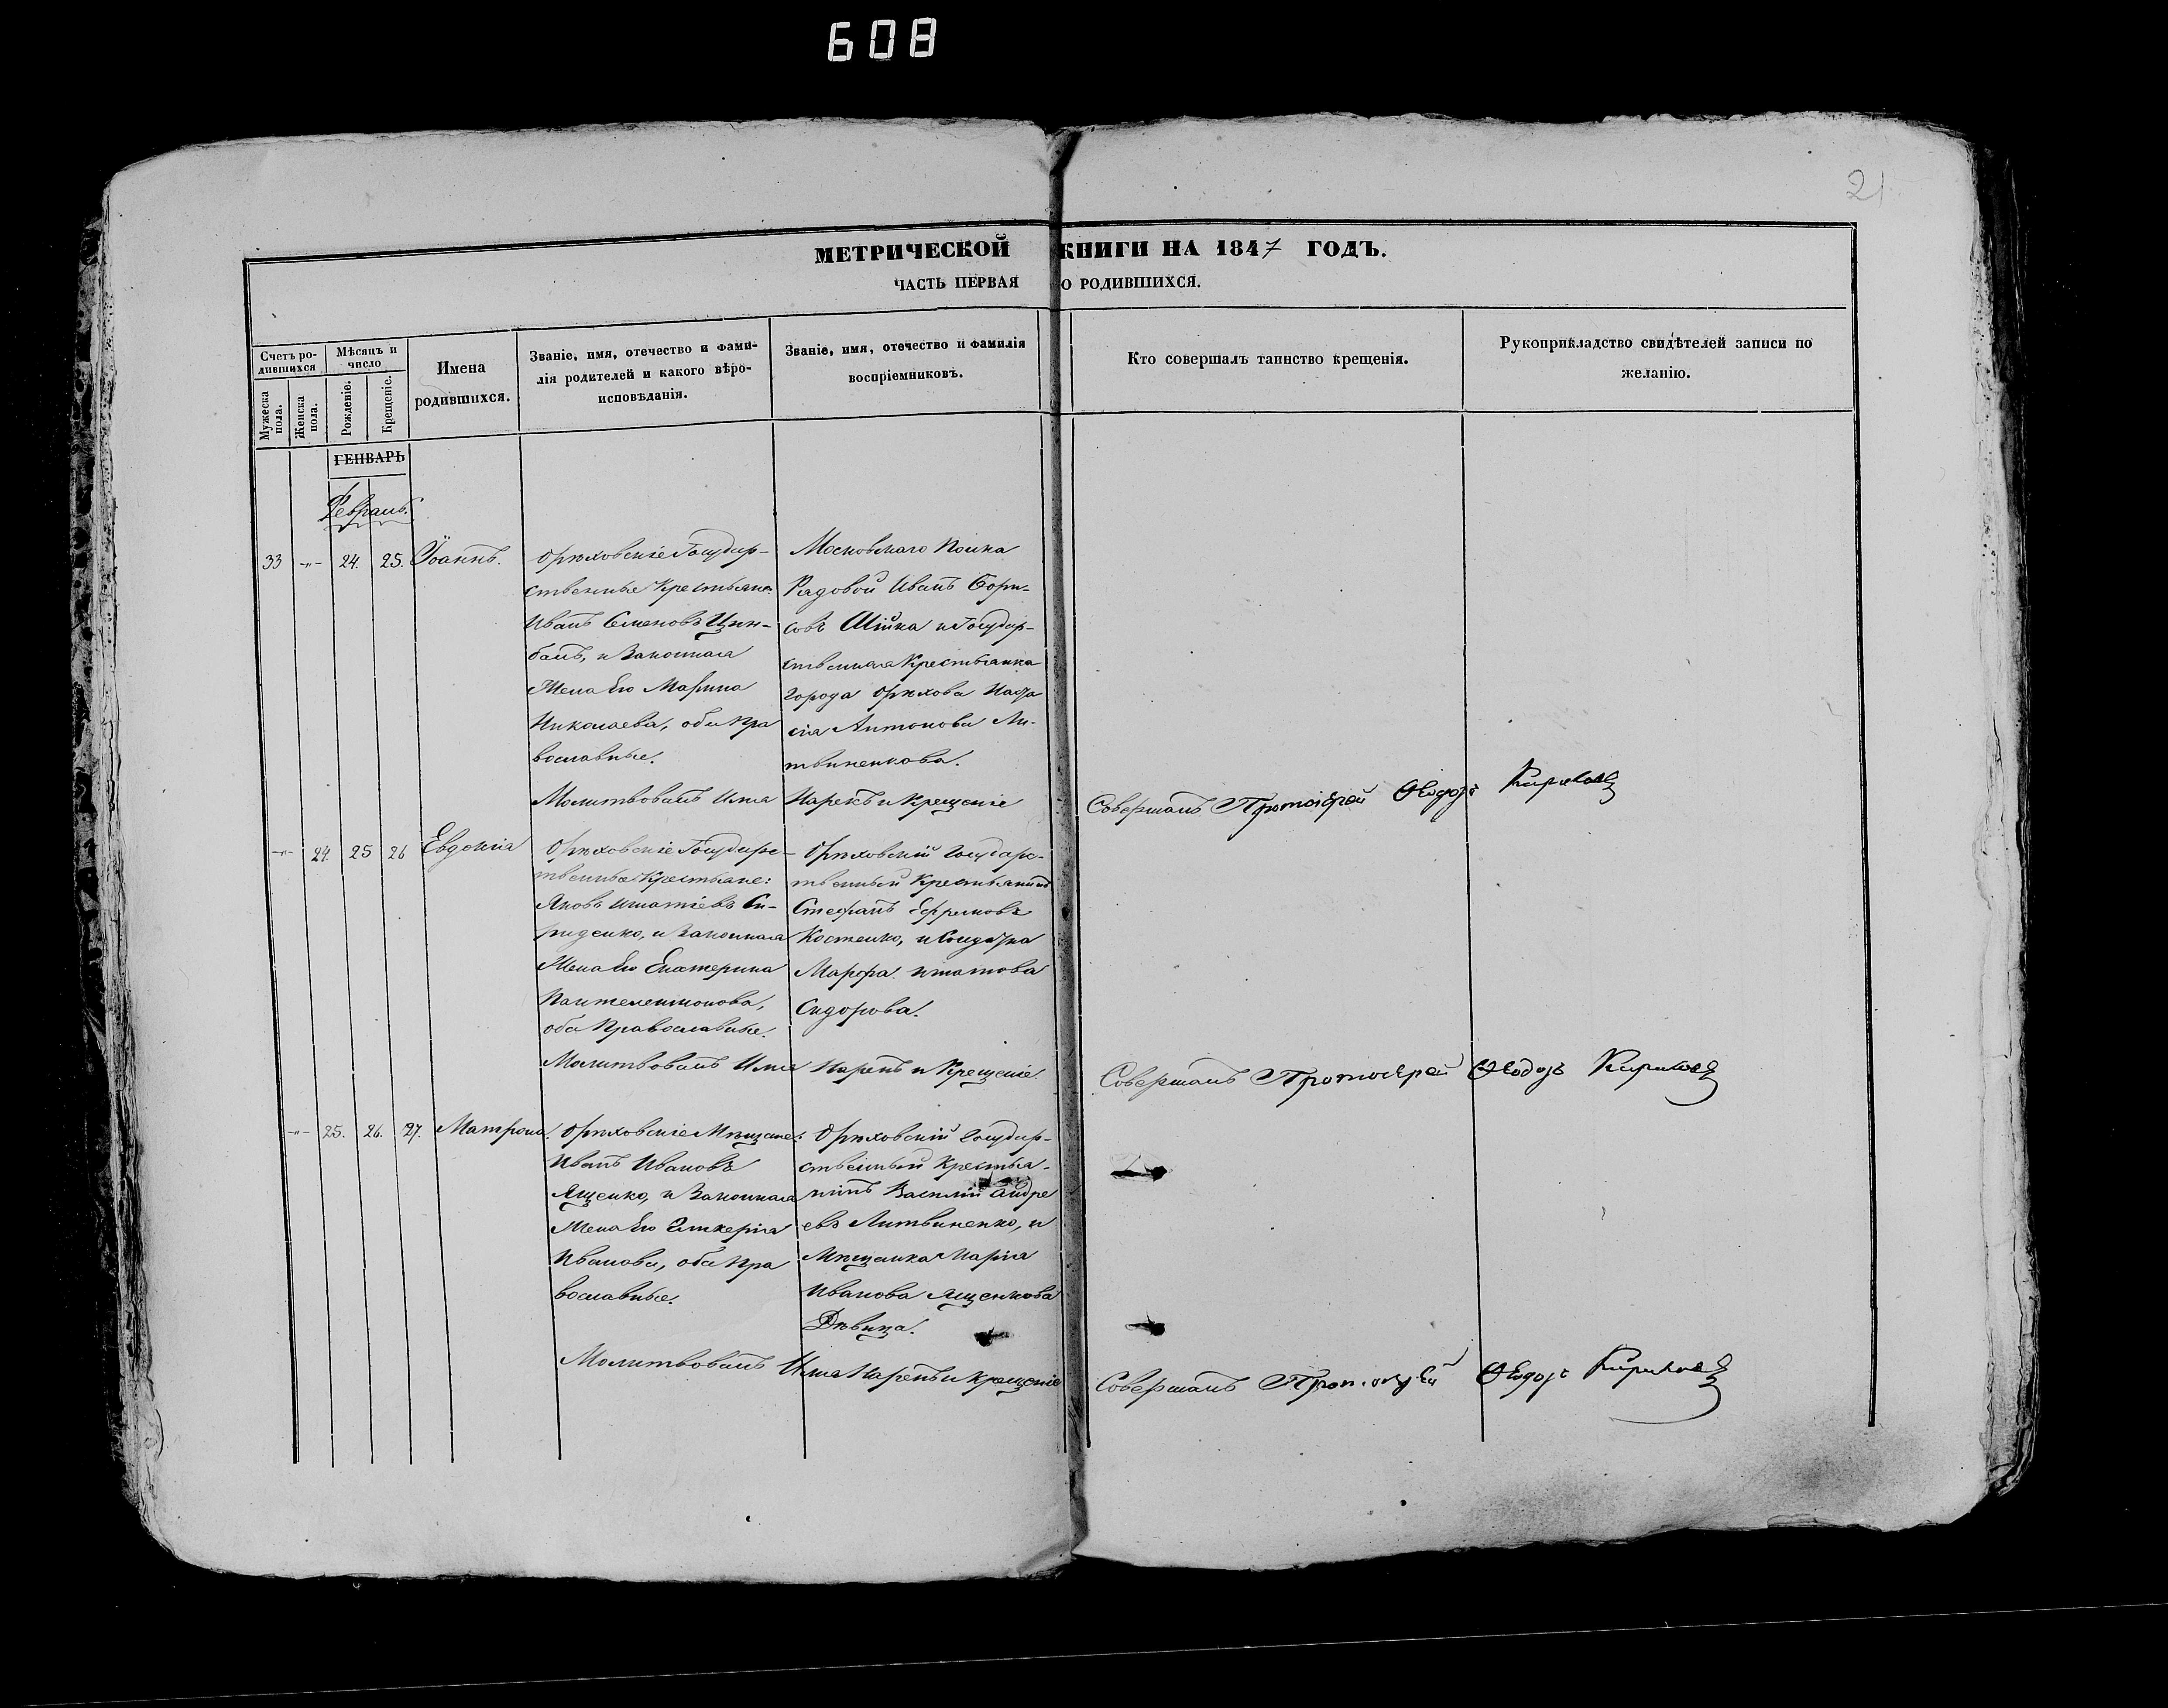 608
21
МЕТРИЧЕСКОЙ КНИГИ НА 1847 ГОДЪ.
ЧАСТЬ ПЕРВАЯ О РОДИВШИХСЯ.
Счетъ ро-
дившихся
Мужеска
пола.
Женска
пола.
Мѣсяцъ и
число
Рожденіе.
Крещеніе.
Имена
родившихся.
Званіе, имя, отечество и фами-
лія родителей и какого вѣро-
исповѣданія.
Званіе, имя, отечество и фамилія
воспріемниковъ.
Кто совершалъ таинство крещенія.
Рукоприкладство свидѣтелей записи по
желанію.
ГЕНВАРЬ
Февраль.
33 -„- 24. 25. Іоаннъ.
Орѣховскіе Государ-
ственные Крестьяне
Иванъ Семеновъ Цым-
балъ, и Законная
Жена Его Марина
Николаева, оба Пра
вославные.
Московскаго Полка
Рядовой Иванъ Бори-
совъ и Государ-
ственная Крестьянка
города Орѣхова
Антонова Ли-
твиненкова.
Молитвовалъ Имя Нарекъ и Крещеніе
Совершалъ Протоіерей Ѳеодоръ
-„- 24. 25 26 Евдокія
Орѣховскіе Государс-
твенные Крестьяне:
Яковъ Игнатіевъ Сви-
риденко, и Законная
Жена Его Екатерина
Пантелеимонова,
оба Православные.
Орѣховскій Государс-
твенный Крестьянинъ
Стефанъ Ефремовъ
Костенко, и Солдатка
Марфа Игнатова
Сидорова.
Молитвовалъ Имя Нарекъ и Крещеніе
Совершалъ Протоіерей Ѳеодоръ
-„- 25. 26. 27. Матрона.
Орѣховскіе Мѣщане:
Иванъ Ивановъ
Ященко, и Законная
Жена Его Гликерія
Иванова, оба Пра
вославные.
Орѣховскій Государ-
ственный Крестья-
нинъ Василій Андре
евъ Литвиненко, и
Мѣщанка Марія
Иванова Ященкова
Дѣвица.
Молитвовалъ Имя Нарекъ и Крещеніе
Совершалъ Протоіерей Ѳеодоръ